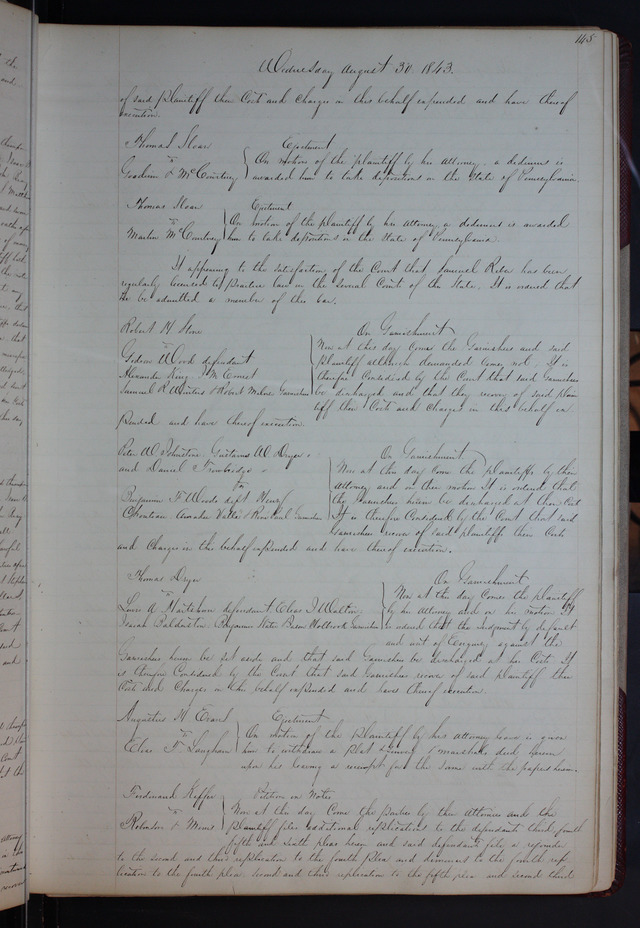 145
Wednesday August 30 1843.
of said plaintiff their Costs and Charges in this behalf expended and have thereof
execution.
Thomas Sloan Ejectment
vs On motion of the plaintiff by his attorney a dedimus is
Goodwin & McCourtney awarded him to take depositions in the State of Pennsylvania.
Thomas Sloan Ejectment
vs On motion of the plaintiff by his attorney a dedimus is awarded
Martin McCourtney him to take depositions in the State of Pennsylvania
It appearing to the satisfaction of the Court that Samuel has been
regularly licensed to practice law in the several Courts of the State. It is ordered that
he be admitted a member of this bar.
Robert H Stone On Garnishment
vs Now at this day comes the Garnishees and said
Gideon Wood defendant plaintiff although demanded comes not, It is
Alexander King, Ernest therefore Considered by the Court that said Garnishees
Samuel R Winters & Robert Milne Garnishees be discharged and that they recover of said plain
tiff their Costs and charges in this behalf ex
pended and have thereof execution.
Peter W Johnston Gustavus W Dryer On Garnishment
and Daniel Now at this day come the plaintiffs by their
vs attorney and on their motion It is ordered that
Benjamin F Woods deft Henry the Garnishees herein be discharged at their Cost
Chouteau Amadee Valle & Garnishees It is therefore Considered by the Court that said
Garnishees recover of said plaintiffs their Costs
and Charges in this behalf expended and have thereof execution.
Thomas Dryer On Garnishment
vs Now at this day Comes the plaintiff
Lewis A defendant Elias D Walton by his attorney and on his motion It
Isaiah Baldwin Benjamin Holbrook Garnishees is ordered that the Judgment by default
and writ of Enquiry against the
Garnishees herein be set aside and that said Garnishees be discharged at his Cost. It
is therefore Considered by the Court that said Garnishees recover of said plaintiff their
Costs and Charges in this behalf expended and have thereof execution
Augustus H Evans Ejectment
vs On motion of the plaintiff by his attorney leave is given
Elias T Langham him to withdraw a plat & survey & marshalls deed herein
upon his leaving a receipt for the same with the papers herein.
Ferdinand Keffer Petition on Notes
vs Now at this day Come the parties by their Attornies and the
Robinson & plaintiff files additional replications to the defendants third, fourth
fifth and sixth pleas herein and said defendants file a rejoinder
to the second and third replication to the fourth plea and demurrer to the fourth rep
lication to the fourth plea, second and third replication to the fifth plea and second third